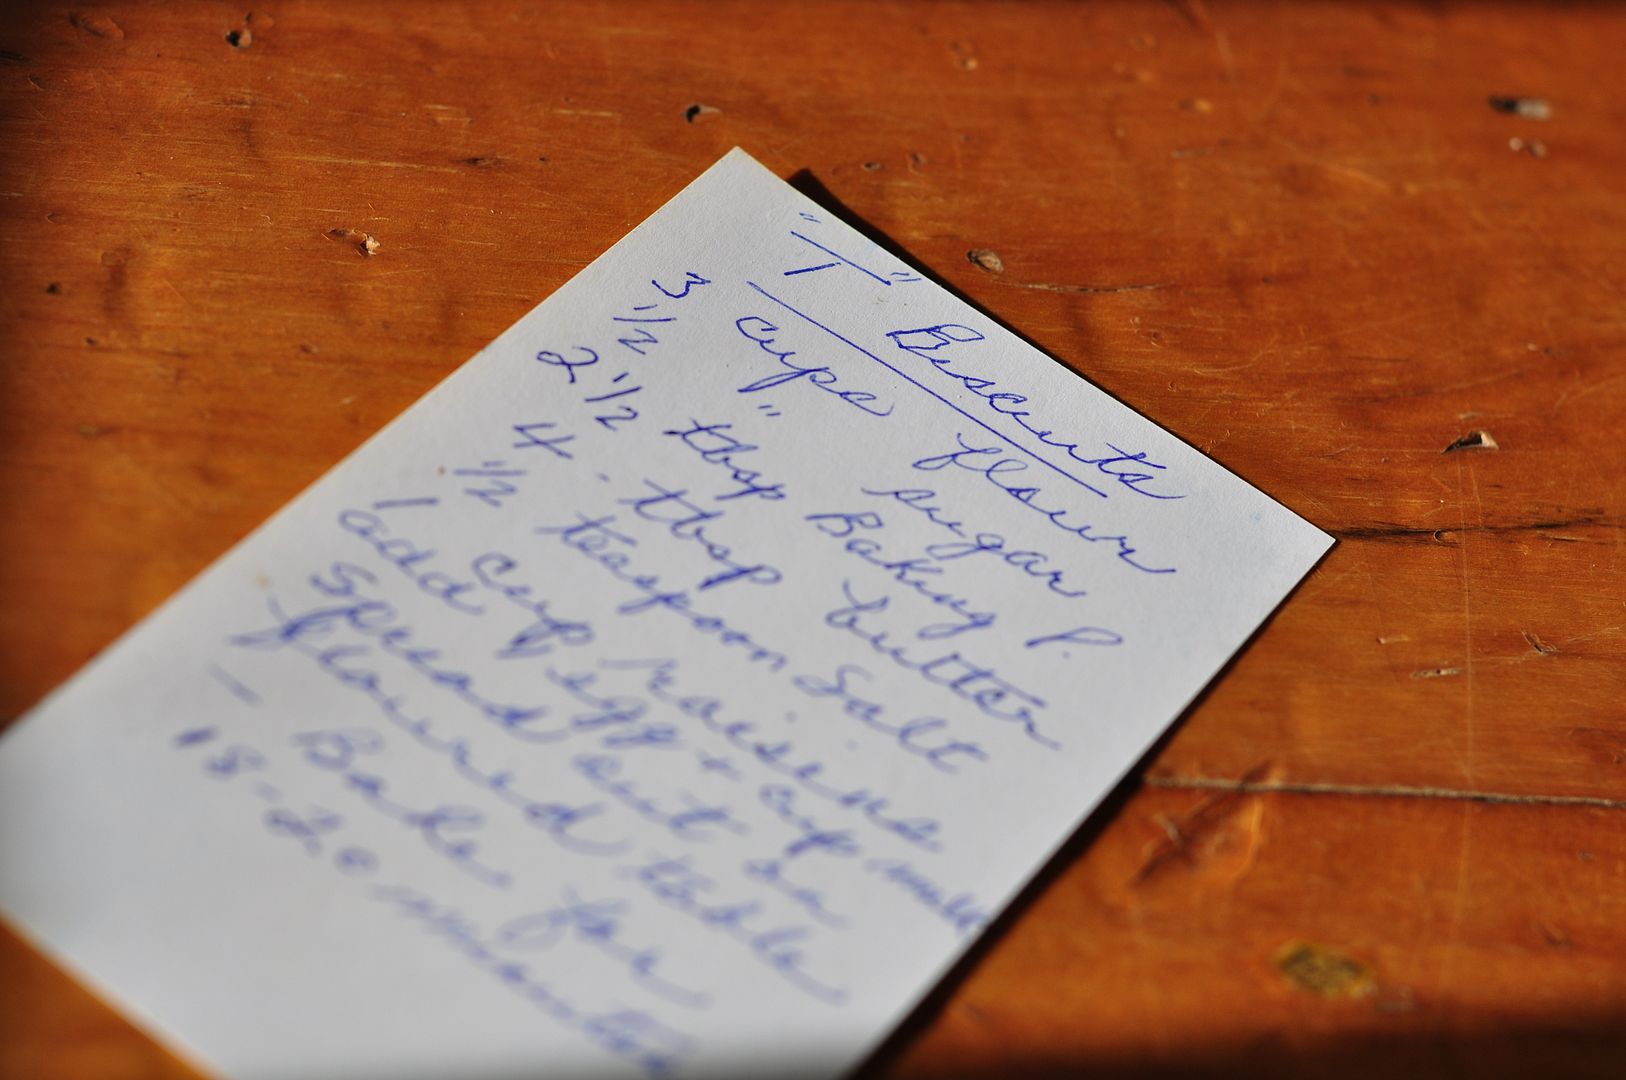 "T" Biscuits
3 cups flour
1/2 " sugar
2 1/2 tbsp Baking P.
4 - tbsp butter
1/2 teaspoon Salt
1 cup raisins
add egg + cup milk
Spread out on
floured table
- Bake for
18-20 minutes